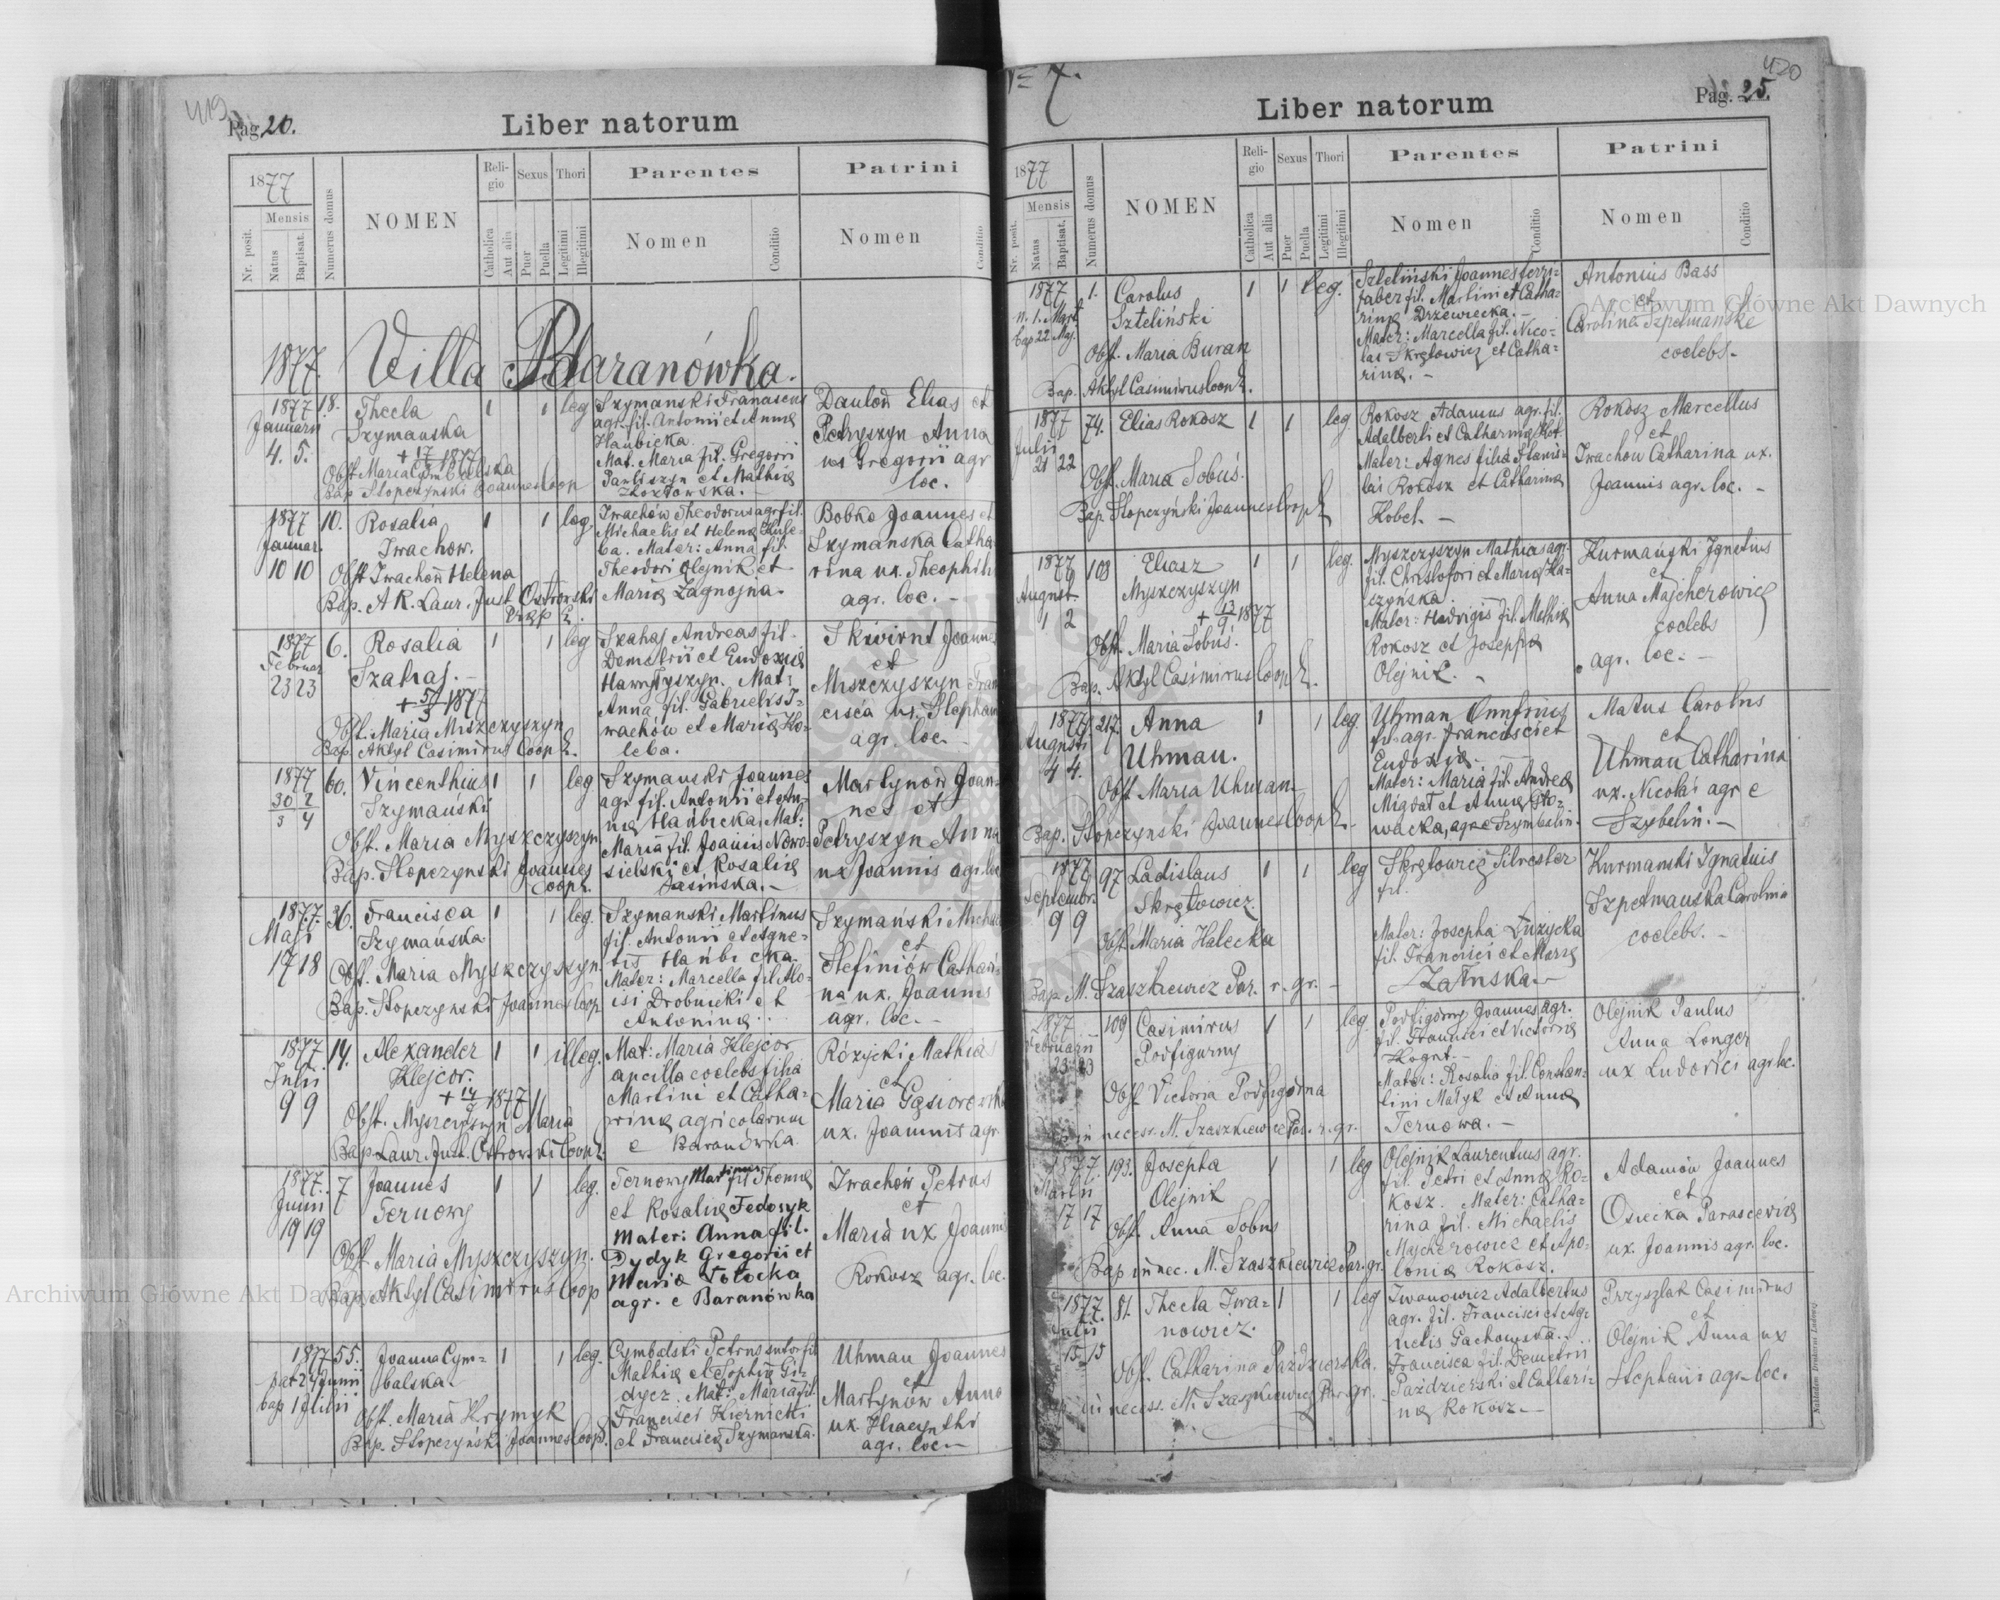 419
Pag. 20.
Liber natorum
1877
Nr. posit.
Mensis
Natus
Baptisat.
Numerus domus
NOMEN
Religio
Catholica
Aut alia
Sexus
Puer
Puella
Thori
Legitimi
Illegitimi
Parentes
Nomen
Conditio
Patrini
Nomen
Conditio
1877. Villa Baranówka.
1877
Januarii
4. 5.
18.
Thecla
Szymanska
+ 17 1877
Bap. Stopczynski Joannes Coop
1
1
leg
Szymanski Franciscus
agr. fil. Antonii et Annę
Hanbicka.
Mat. Maria fil. Gregorii
et Mathię
Elias et
Petryszyn Anna
ux Gregorii agr
loc.
1877
Januar.
10 10
10.
Rosalia
Iwachow.
Obst. Iwachow Helena
Bap. A R. Laur. Just. Ostrowski
1
1
leg
Iwachów Theodorus agr. fil.
Michaelis et Helenę
Mater: Anna fil.
Theodori Olejnik et
Marię Zagnojna.
Bobko Joannes et
Szymanska Catha
rina ux. Theophili
agr. loc. –
1877
Februar
23 23
6.
Rosalia
Szahaj. –
+ 5/3 1877
Obst. Maria Miszczyszyn
Bap. Aktyl Casimirus Coop.
1
1
leg
Szahaj Andreas fil.
Demetrii et Eudoxię
Mat:
Anna fil. Gabrielis I-
wachów et Marię Ko-
leba.
Skwirut Joannes
et
Miszczyszyn Fran
cisca ux. Stephani
agr. loc.
1877
30/3 2/4
60.
Vincenthius
Szymański
Obst. Maria Myszczyszyn
Bap. Stopczynski Joannes
Coop.
1
1
leg
Szymanski Joannes
agr. fil. Antonii et An-
nę Hanbicka. Mat:
Maria fil. Joannis Nowo-
sielski et Rosalię
Jasińska. –
Martynow Joan-
nes et
Petryszyn Anna
ux Joannis agr. loc
1877.
Maji
17 18
36.
Francisca
Szymańska
Obst. Maria Myszczyszyn.
Bap. Stopczynski Joannes Coop
1
1
leg.
Szymanski Martinus
fil. Antonii et Agne-
tis Hanbicka.
Mater: Marcella fil. Alo-
isi Drobnicki et
Antoninę.
Szymański Micha
et
Stefiniów Cathari-
na ux. Joannis
agr. loc. –
1877
Julii
9 9
14.
Alexander
Klejcor.
1877
Obst. Myszczyszyn Maria
Bap. Laur. Just. Ostrowski Coop.
1
1
illeg.
Mat: Maria Klejcor
ancilla coelebs filia
Martini et Catha-
rinę agricolarum
e Baranówka.
Rózycki Mathias
et
Maria Gąsiorowska
ux. Joannis agr.
1877.
Junii
19 19
7
Joannes
Ternowy
Obst. Maria Myszczyszyn.
Bap. Aktyl Casimirus Coop
1
1
leg.
Ternowy Martinus fil. Thomę
et Rosalię Fedosyk
Mater: Anna fil.
Dydyk Gregorii et
Marię
agr. e Baranówka
Iwachów Petrus
et
Maria ux Joannis
Rokosz agr. loc.
1877
nat 24 Junii
bap 1 Julii
55.
Joanna Cym-
balska.
Obst. Maria Krymyk
Bap. Stopczyński Joannes Coop.
1
1
leg.
Cymbalski Petrus sutor fil
Mathię et Sophię Gi-
dycz. Mat: Maria fil.
Francisci Kiernicki
et Franciscę Szymanska.
Uhman Joannes
et
Martynów Anna
ux. Hiacynthi
agr. loc. –
420
Pag. 25.
Liber natorum
1877
Nr. posit.
Mensis
Natus
Baptisat.
Numerus domus
NOMEN
Religio
Catholica
Aut alia
Sexus
Puer
Puella
Thori
Legitimi
Illegitimi
Parentes
Nomen
Conditio
Patrini
Nomen
Conditio
1877
n. 1. Mart.
bap 22 Maj.
1.
Carolus
Szteliński
Obst. Maria Buran
Bap. Aktyl Casimirus Coop.
1
1
leg.
Szteliński Joannes ferri-
faber fil. Martini et Catha-
rinę Drzewiecka. –
Mater: Marcella fil. Nico-
lai Skrętowicz et Catha-
rinę. –
Antonius Bass
et
Carolina Szpetmańska
coelebs –
1877
Julii
21 22
74.
Elias Rokosz
Obst. Maria Sobuś.
Bap. Stopczyński Joannes Coop.
1
1
leg
Rokosz Adamus agr. fil.
Adalberti et Catharinę
Mater: Agnes filia Stanis-
lai Rokosz et Catharinę
Kobel. –
Rokosz Marcellus
et
Iwachow Catharina ux.
Joannis agr. loc. –
1877
August
1 2
103
Eliasz
Myszczyszyn
+ 13/9 1877
Obst. Maria Sobuś.
Bap. Aktyl Casimirus Coop.
1
1
leg.
Myszczyszyn Mathias agr.
fil. Christofori et Marię Ka-
czyńska.
Mater: Hedvigis fil. Mathię
Rokosz et Josephę
Olejnik.
Kurmański Ignatius
et
Anna Majcherowicz
coelebs
agr. loc. –
1877
Augusti
4 4.
217.
Anna
Uhman.
Obst. Maria Uhman
Bap. Stopczynski Joannes Coop.
1
1
leg
Uhman Onufrius
fil. agr. Francisci et
Eudoxię. –
Mater: Maria fil. Andreę
Migdał et Annę Gło-
wacka, agr. e Szymbalin.
Matus Carolus
et
Uhman Catharina
ux. Nicolai agr e
Szybelin. –
1877
Septembr.
9 9
97
Ladislaus
Skrętowicz.
Obst. Maria Halecka
Bap. M. Szaszkiewicz Par. r. gr. –
1
1
leg
Skrętowicz Silvester
fil.
Mater: Josepha Łużycka
fil. Francisci et Marię
Zatńska. –
Kurmanski Ignatius
Szpetmańska Carolina
coelebs. –
1877
Februarii
23 23
109
Casimirus
Podfigurny
Obst. Victoria Podfigórna
in necess. M. Szaszkiewicz Par. r. gr.
1
1
leg.
Podfigórny Joannes agr.
fil. Francisci et Victorię
Kognt. –
Mater: Rosalia fil. Constan-
tini Matyk et Annę
Ternowa. –
Olejnik Paulus
Anna Longer
ux Ludovici agr. loc.
1877
Martii
17 17
193.
Josepha
Olejnik
Obst. Anna Sobus
Bap in nec. M. Szaszkiewicz Par. gr.
1
1
leg
Olejnik Laurentius agr.
fil. Petri et Annę Ro-
kosz. Mater: Catha-
rina fil. Michaelis
Majcherowicz et Apo-
lonię Rokosz.
Adamów Joannes
et
Osiecka Parascevia
ux. Joannis agr. loc.
1877.
Julii
15 15
81.
Thecla Iwa-
nowicz.
Obst. Catharina Paździerska.
in necess. M. Szaszkiewicz Par. gr.
1
1
leg
Iwanowicz Adalbertus
agr. fil. Francisci et Ag-
netis Gachowska.
Francisca fil. Demetrii
Paździerski et Cathari-
nę Rokosz. –
Przyszlak Casimirus
et
Olejnik Anna ux
Stephani agr. loc.
Nakładem Drukarni Ludowej
Archiwum Główne Akt Dawnych
Archiwum Główne Akt Dawnych